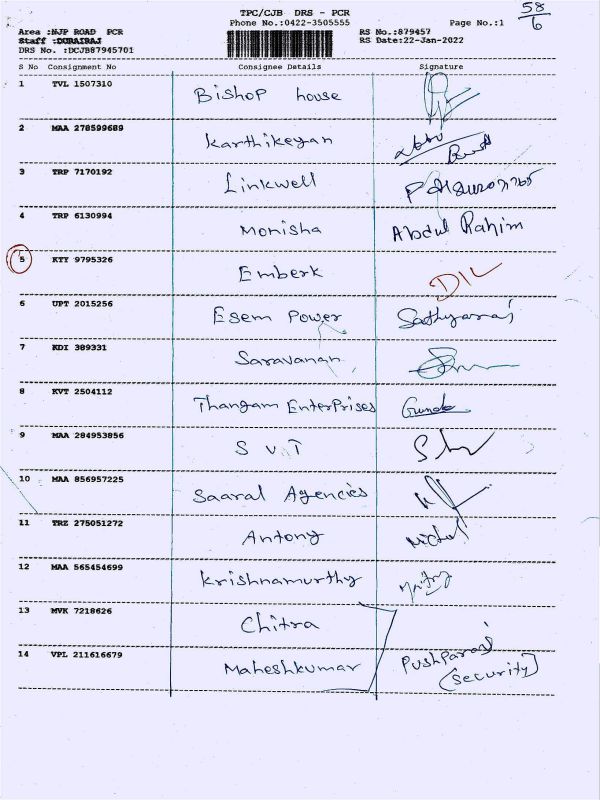 TPC/CJB DRS - PCR
Phone No.:0422-3505555 Page No.:1 58/6
Area :NJP ROAD PCR RS No.:879457
Staff :DURAIRAJ RS Date:22-Jan-2022
DRS No. :DCJB87945701
S No Consignment No Consignee Details Signature
1 TVL 1507310 Bishop house
2 MAA 278599689 Karthikeyan
3 TRP 7170192 Linkwell
4 TRP 6130994 Monisha Abdul Rahim
5 KTY 9795326 Emberk DIL
6 UPT 2015256 Esem Power Sathyaraj
7 KDI 389331 Saravanan
8 KVT 2504112 Thangam Enterprises
9 MAA 284953856 S V T
10 MAA 856957225 Saaral Agencies
11 TRZ 275051272 Antony
12 MAA 565454699 Krishnamurthy
13 MVK 7218626 Chitra
14 VPL 211616679 Maheshkumar Pushparaj
(Security)